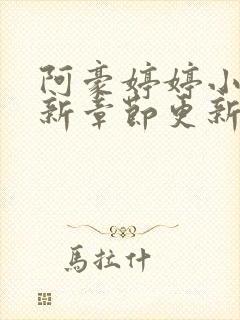 阿豪婷婷小
新章節更新
馬拉什